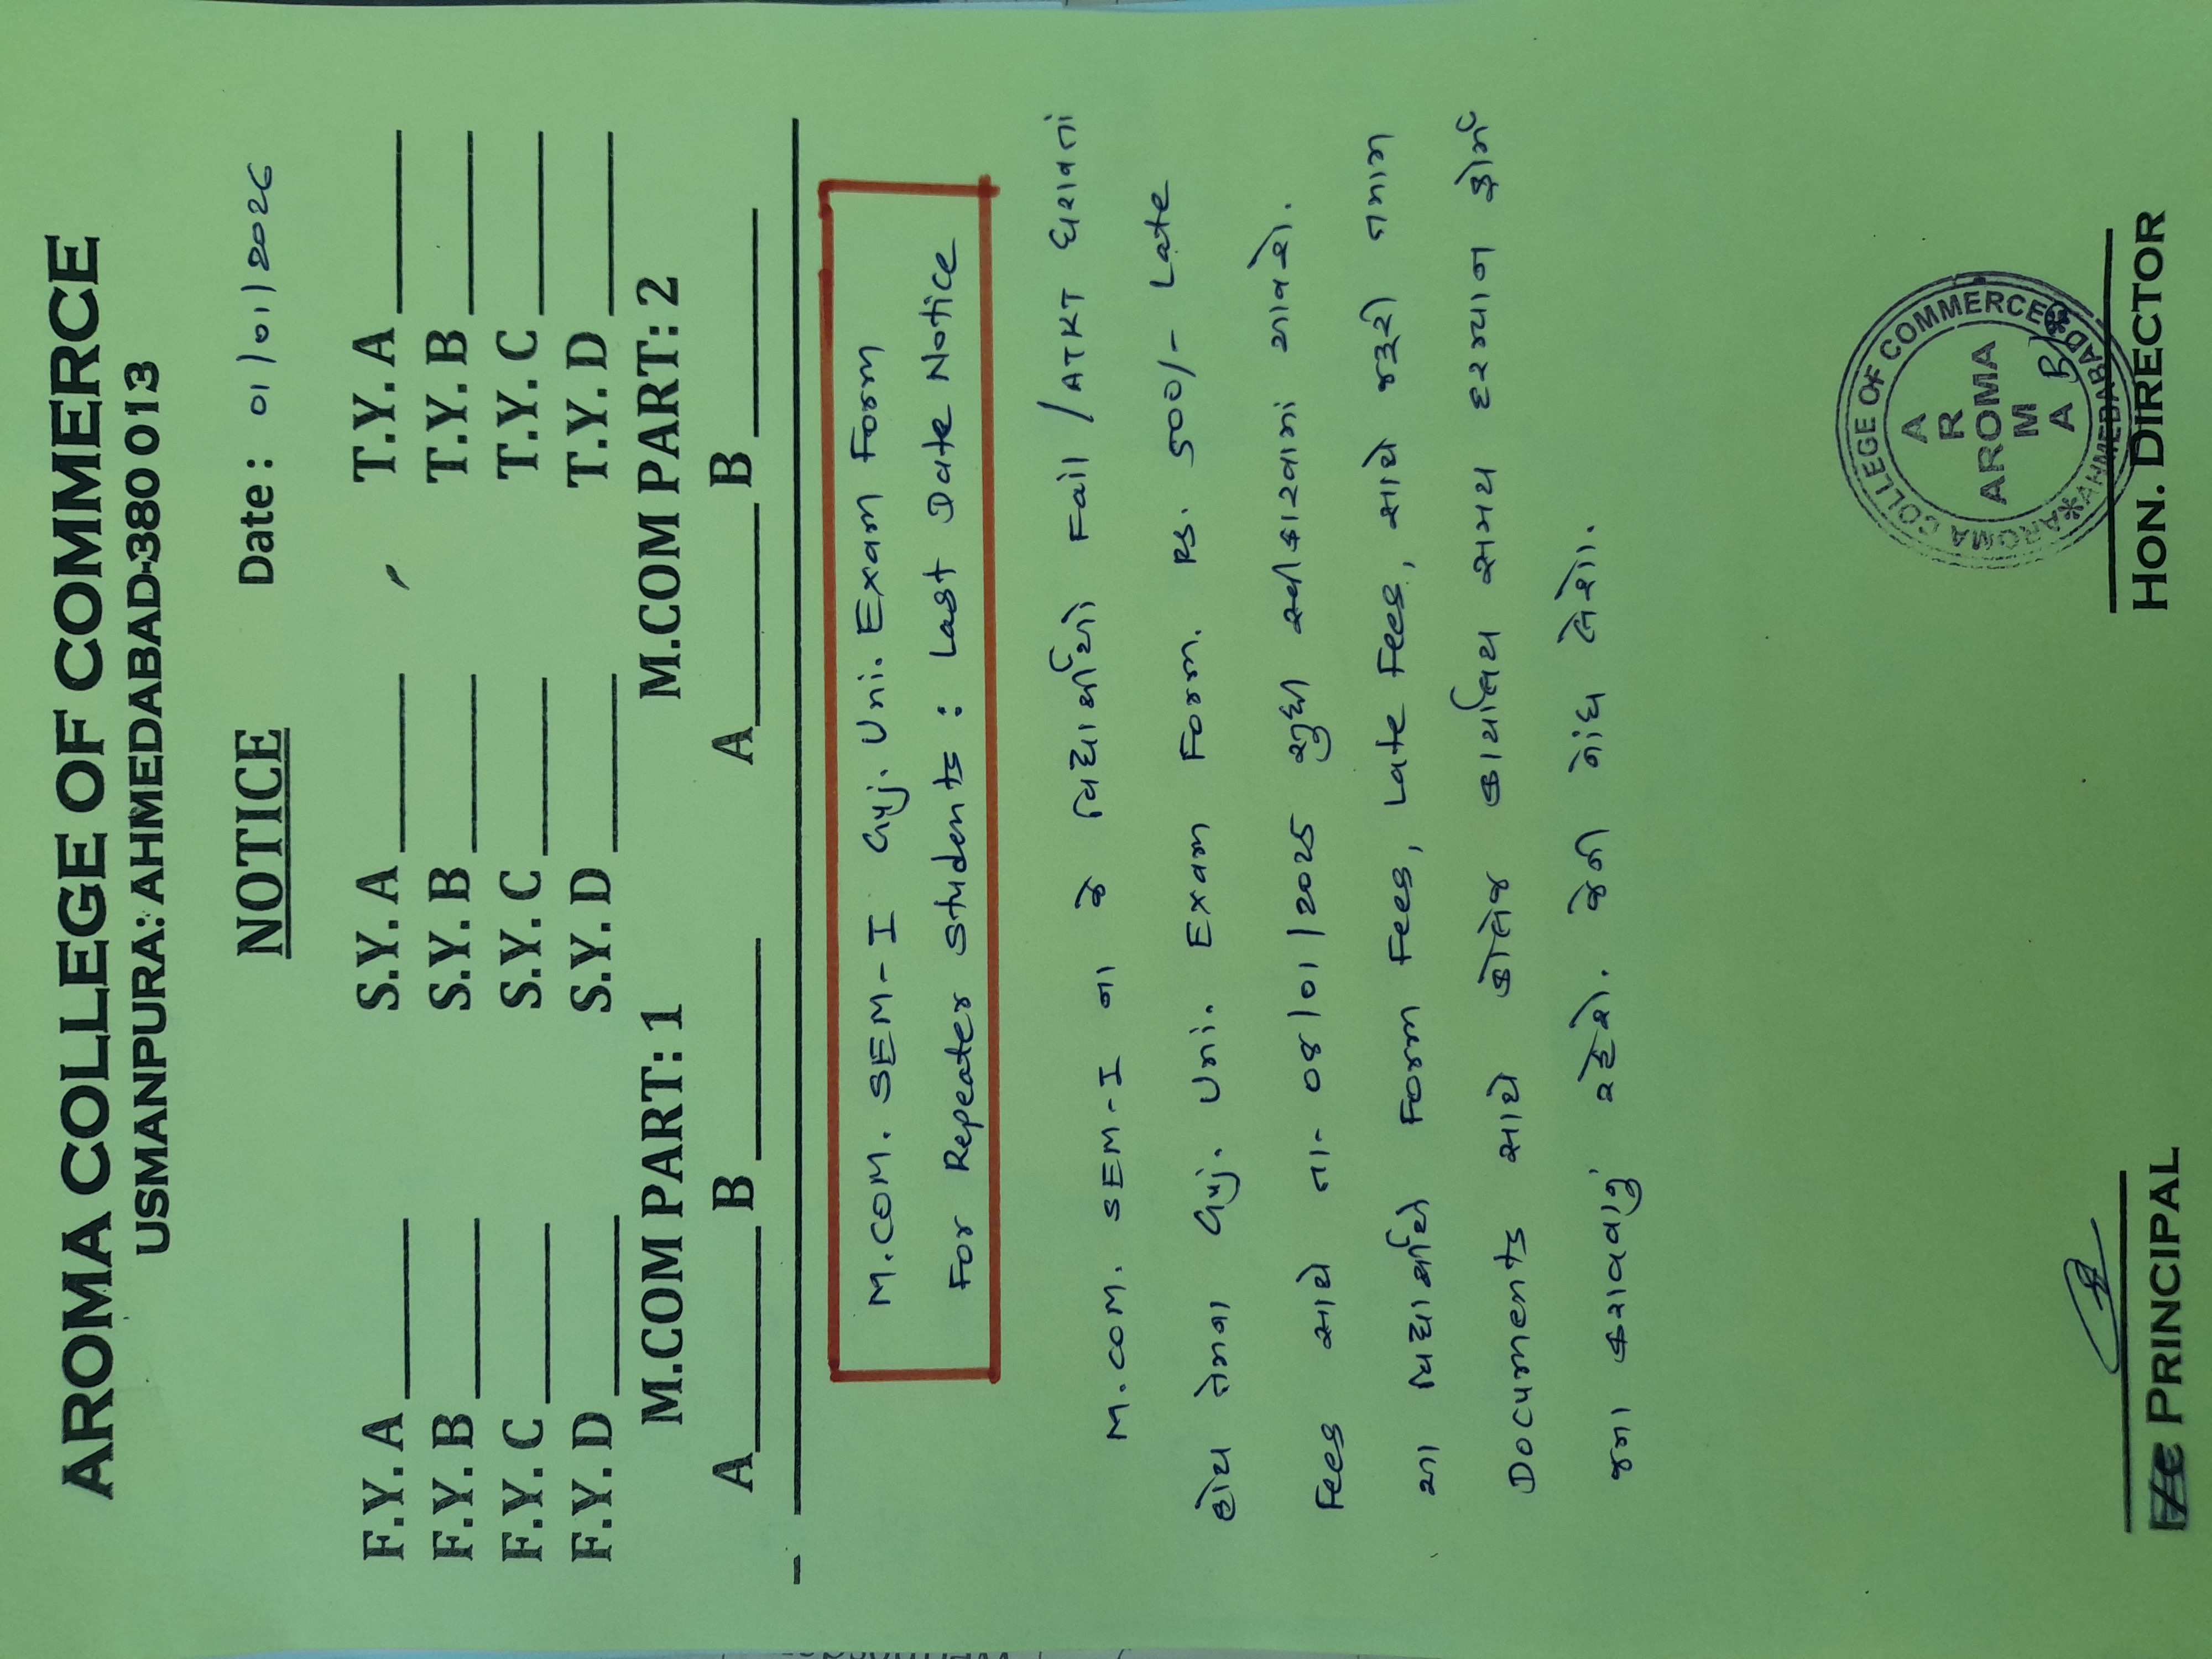 AROMA COLLEGE OF COMMERCE
USMANPURA: AHMEDABAD-380 013
NOTICE Date: 01/01/2026
F.Y. A ______ S.Y. A ______ T.Y. A ______
F.Y. B ______ S.Y. B ______ T.Y. B ______
F.Y. C ______ S.Y. C ______ T.Y. C ______
F.Y. D ______ S.Y. D ______ T.Y. D ______
M.COM PART: 1 M.COM PART: 2
A ______ B ______ A ______ B ______
M.COM. SEM-I Guj. Uni. Exam Form
For Repeater Students : Last Date Notice
M.COM. SEM-I ના જે વિદ્યાર્થીઓ Fail/ATKT ધરાવતાં
હોય તેમના Guj. Uni. Exam Form. Rs. 500/- Late
Fees સાથે તા- 08/01/2025 સુધી સ્વીકારવામાં આવશે.
આ વિદ્યાર્થીએ Form Fees, Late Fees, સાથે જરૂરી તમામ
Documents સાથે કોલેજ કાર્યાલય સમય દરમ્યાન ફોર્મ
જમા કરાવવાનું રહેશે. જેની નોંધ લેશો.
PRINCIPAL HON. DIRECTOR
AROMA COLLEGE OF COMMERCE
AHMEDABAD
A
R
AROMA
M
A